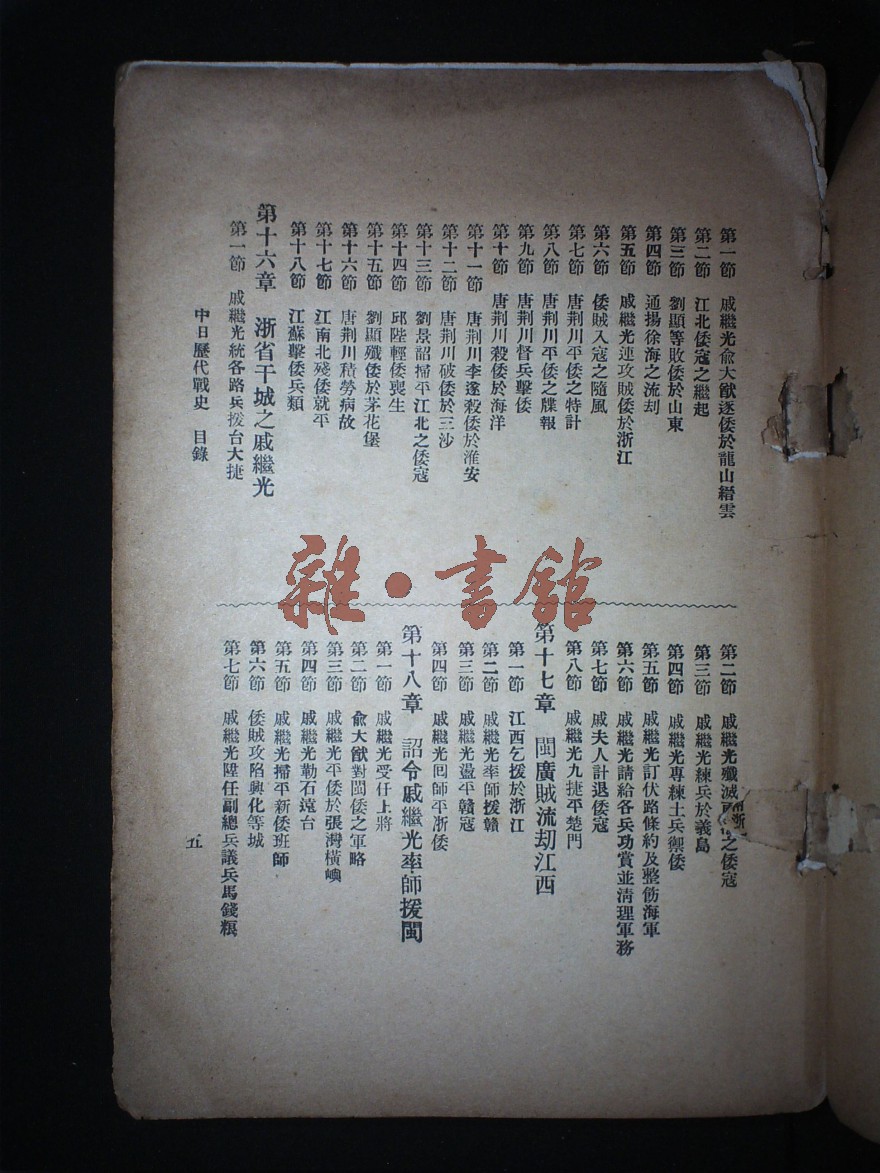 第一節 戚繼光俞大猷逐倭於龍山縉雲
第二節 江北倭寇之繼起
第三節 劉顯等敗倭於山東
第四節 通揚徐海之流刦
第五節 戚繼光連攻賊倭於浙江
第六節 倭賊入寇之隨風
第七節 唐荆川平倭之特計
第八節 唐荆川平倭之牒報
第九節 唐荆川督兵擊倭
第十節 唐荆川殺倭於海洋
第十一節 唐荆川李遂殺倭於淮安
第十二節 唐荆川破倭於三沙
第十三節 劉景韶掃平江北之倭寇
第十四節 邱陞輕倭喪生
第十五節 劉顯殲倭於茅花堡
第十六節 唐荆川積勞病故
第十七節 江南北殘倭就平
第十八節 江蘇擊倭兵類
第十六章 浙省干城之戚繼光
第一節 戚繼光統各路兵援台大捷
中日歷代戰史 目錄
第二節 戚繼光殲滅之倭寇
第三節 戚繼光練兵於義烏
第四節 戚繼光專練土兵禦倭
第五節 戚繼光訂伏路條約及整飭海軍
第六節 戚繼光請給各兵功賞並清理軍務
第七節 戚夫人計退倭寇
第八節 戚繼光九捷平楚門
第十七章 閩廣賊流刧江西
第一節 江西乞援於浙江
第二節 戚繼光率師援贛
第三節 戚繼光盪平贛寇
第四節 戚繼光囘師平浙倭
第十八章 詔令戚繼光率師援閩
第一節 戚繼光受任上將
第二節 俞大猷對閩倭之軍略
第三節 戚繼光平倭於張灣橫嶼
第四節 戚繼光勒石遠台
第五節 戚繼光掃平新倭班師
第六節 倭賊攻陷興化等城
第七節 戚繼光陞任副總兵議兵馬錢糧
五
雜·書館